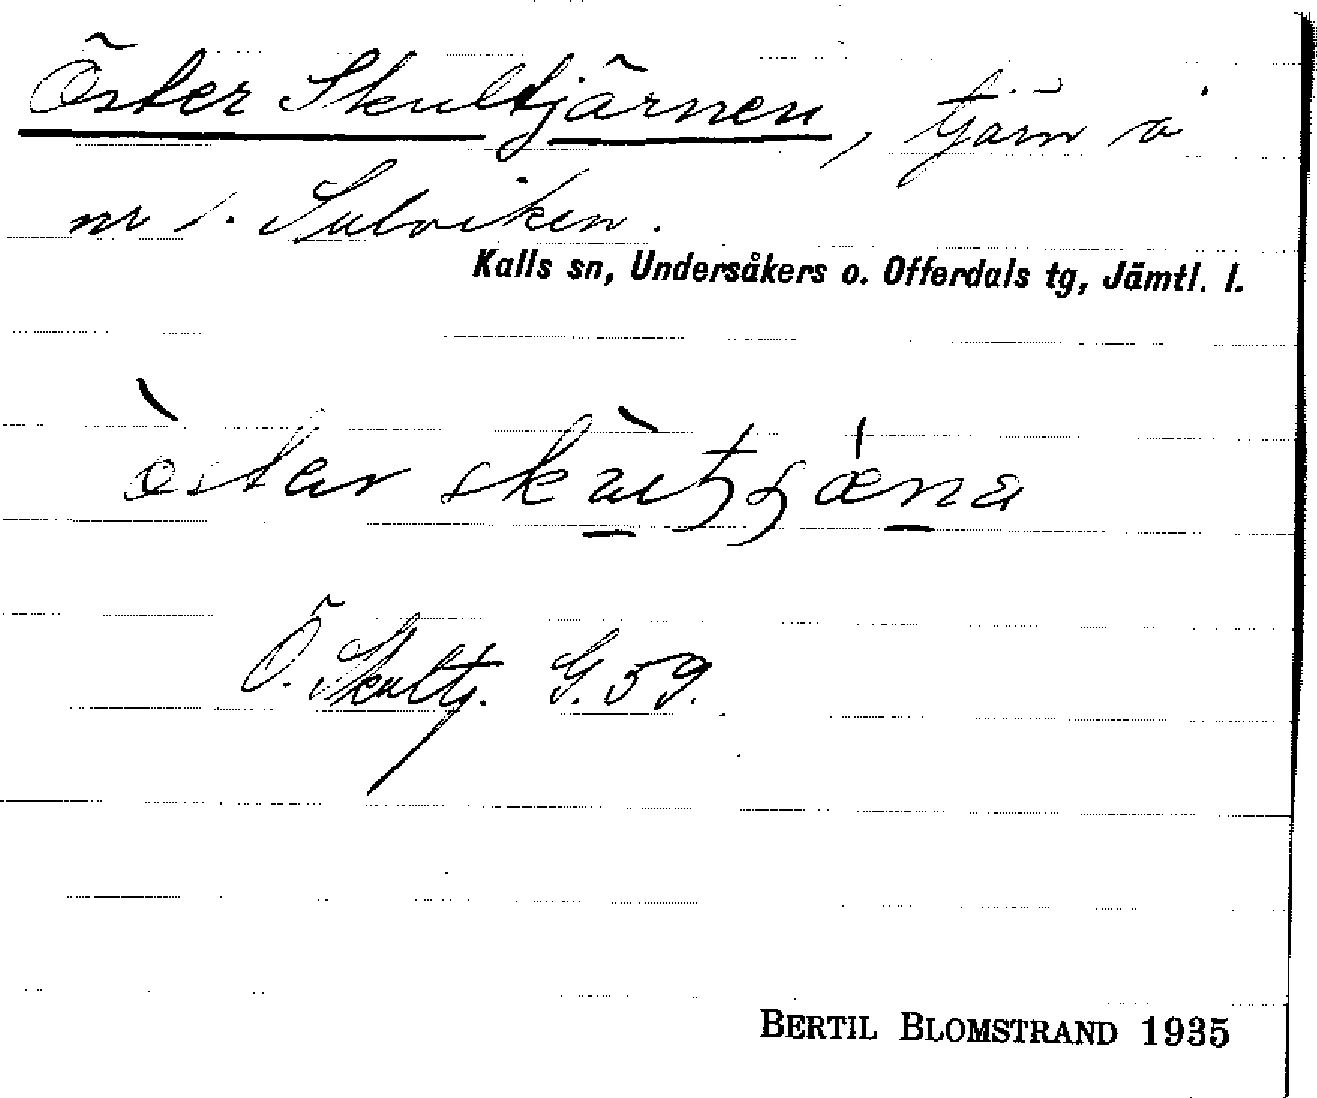 Öster Skultjärnen, tjärn å
nr 1. Sulviken.
Kalls sn, Undersåkers o. Offerdals tg, Jämtl. l.
Ö. Skultj. G. 59.
BERTIL BLOMSTRAND 1935